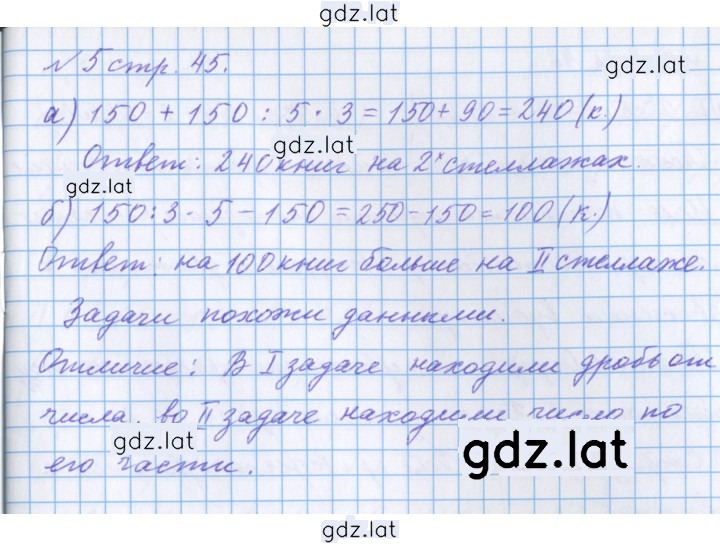 gdz.lat
№ 5 стр. 45.
gdz.lat
а) 150 + 150 : 5 · 3 = 150 + 90 = 240 (к.)
gdz.lat
Ответ: 240 книг на 2ˣ стеллажах.
gdz.lat
б) 150 : 3 · 5 - 150 = 250 - 150 = 100 (к.)
Ответ: на 100 книг больше на II стеллаже.
Задачи похожи данными.
Отличие: В I задаче находили дробь от
числа, во II задаче находили число по
gdz.lat
его части.
gdz.lat
gdz.lat